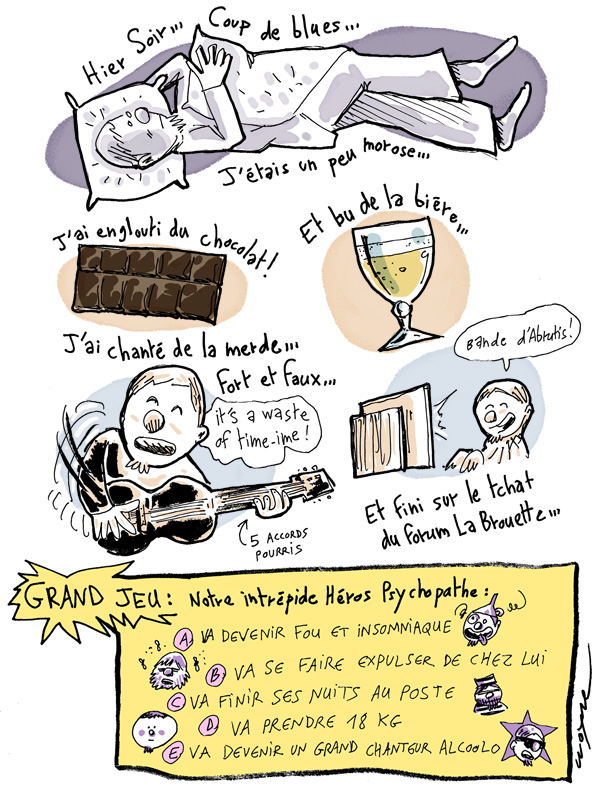 Hier Soir... Coup de blues...
J'étais un peu morose...
J'ai englouti du chocolat!
Et bu de la bière...
J'ai chanté de la merde...
Fort et faux...
it's a waste
of time-ime!
5 ACCORDS
POURRIS
Bande d'Abrutis!
Et fini sur le tchat
du forum La Brouette...
GRAND JEU: Notre intrépide Héros Psychopathe:
A VA DEVENIR FOU ET INSOMNIAQUE
B VA SE FAIRE EXPULSER DE CHEZ LUI
C VA FINIR SES NUITS AU POSTE
D VA PRENDRE 18 KG
E VA DEVENIR UN GRAND CHANTEUR ALCOOLO